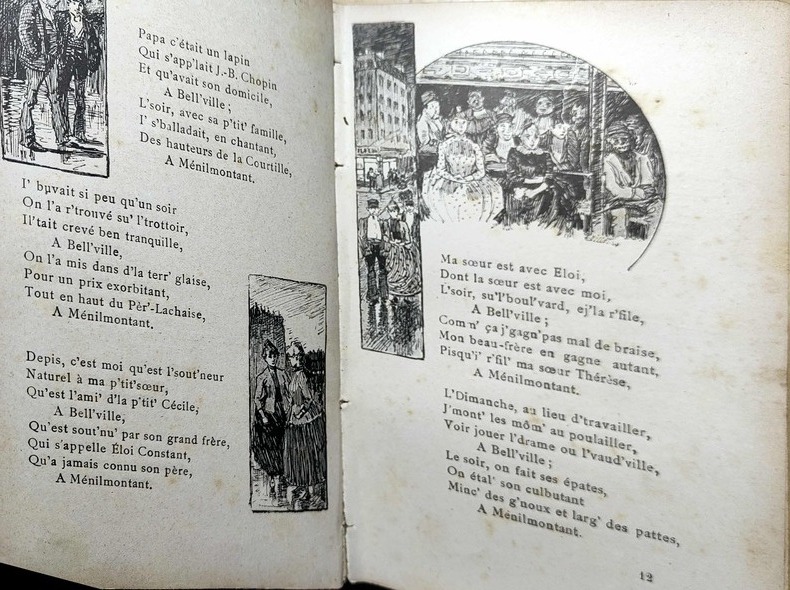 Papa c'était un lapin
Qui s'app'lait J.-B. Chopin
Et qu'avait son domicile,
A Bell'ville ;
L'soir, avec sa p'tit' famille,
I' s'balladait, en chantant,
Des hauteurs de la Courtille,
A Ménilmontant.
I' buvait si peu qu'un soir
On l'a r'trouvé su' l'trottoir,
Il'tait crevé ben tranquille,
A Bell'ville,
On l'a mis dans d'la terr' glaise,
Pour un prix exorbitant,
Tout en haut du Pèr'-Lachaise,
A Ménilmontant.
Depis, c'est moi qu'est l'sout'neur
Naturel à ma p'tit'sœur,
Qu'est l'ami' d'la p'tit' Cécile,
A Bell'ville,
Qu'est sout'nu' par son grand frère,
Qui s'appelle Éloi Constant,
Qu'a jamais connu son père,
A Ménilmontant.
Ma sœur est avec Eloi,
Dont la sœur est avec moi,
L'soir, su'l'boul'vard, ej'la r'file,
A Bell'ville ;
Comm' ça j'gagn'pas mal de braise,
Mon beau-frère en gagne autant,
Pisqu'i' r'fil' ma sœur Thérèse,
A Ménilmontant.
L'Dimanche, au lieu d'travailler,
J'mont' les môm' au poulailler,
Voir jouer l'drame ou l'vaud'ville,
A Bell'ville ;
Le soir, on fait ses épates,
On étal' son culbutant
Minc' des g'noux et larg' des pattes,
A Ménilmontant.
12